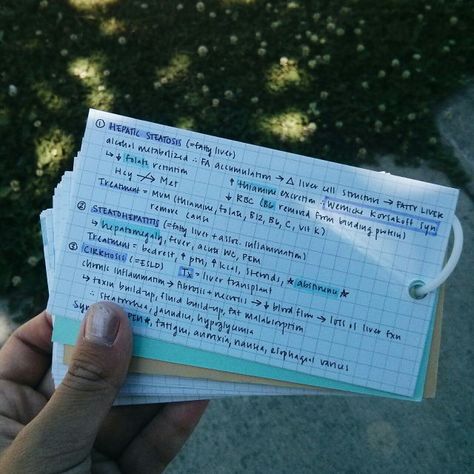 ① HEPATIC STEATOSIS (=fatty liver)
alcohol metabolized ∴ FA accumulation → Δ liver cell structure → FATTY LIVER
↳ ↓ folate retention ↑ thiamine excretion [Wernicke Korsakoff Syn
Hcy ↛ Met ↓ RBC (B6 removed from binding protein)
Treatment = MVM (thiamine, folate, B12, B6, C, vit K)
remove cause
② STEATOHEPATITIS (=fatty liver + assoc. inflammation)
↳ hepatomegaly, fever, acute WC, PEM
Treatment = bedrest, ↑ pro, ↑ kcal, steroids, *abstinence*
③ CIRRHOSIS (=ESLD) Tx = liver transplant
chronic inflammation → fibrosis + necrosis → ↓ blood flow → loss of liver fxn
↳ toxin build-up, fluid build-up, fat malabsorption
∴ Steatorrhea, jaundice, hypoglycemia
Symptoms PEM*, fatigue, anorexia, nausea, esophageal varices